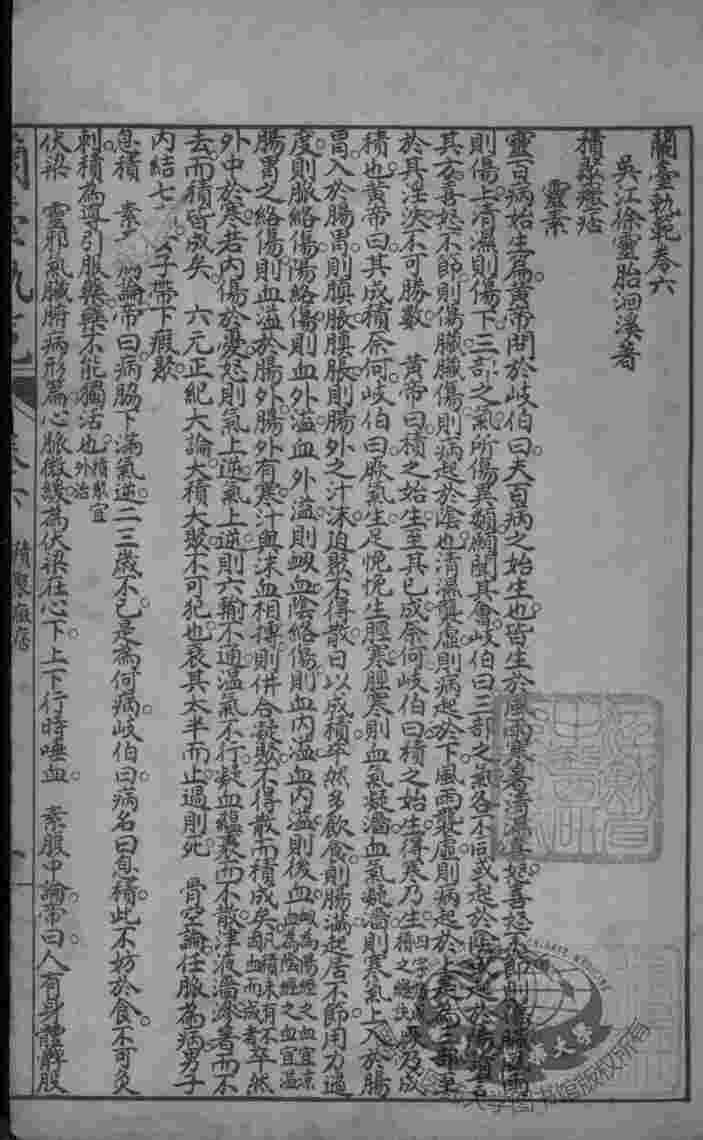 蘭臺軌範卷六
吳江徐靈胎洄溪著
積聚癥痞
靈素
靈百病始生篇黃帝問於岐伯曰夫百病之始生也皆生於風雨寒暑清濕喜怒喜怒不節則傷臟風雨
則傷上清濕則傷下三部之氣所傷異類願聞其會岐伯曰三部之氣各不同或起於陰或起於陽請言
其方喜怒不節則傷臟臟傷則病起於陰也清濕襲虛則病起於下風雨襲虛則病起於上是為三部至
於其淫泆不可勝數 黃帝曰積之始生至其已成奈何岐伯曰積之始生得寒乃生厥乃成
積也黃帝曰其成積奈何岐伯曰厥氣生足悗悗生脛寒脛寒則血氣凝濇血氣凝濇則寒氣上入於腸
胃入於腸胃則䐜脹䐜脹則腸外之汁沫迫聚不得散日以成積卒然多飲食則腸滿起居不節用力過
度則脈絡傷陽絡傷則血外溢血外溢則衄血陰絡傷則血內溢血內溢則後血衄為陽經之血宜涼血為陰經之血宜溫
腸胃之絡傷則血溢於腸外腸外有寒汁與沫血相摶則併合凝聚不得散而積成矣凡積未有不因血而成者卒然
外中於寒若內傷於憂怒則氣上逆氣上逆則六輸不通溫氣不行凝血蘊裹而不散津液濇滲著而不
去而積皆成矣 六元正紀大論大積大聚不可犯也衰其太半而止過則死 骨空論任脈為病男子
內結七 子帶下瘕聚
息積 素 病論帝曰病脇下滿氣逆二三歲不已是為何病岐伯曰病名曰息積此不妨於食不可灸
刺積為導引服藥藥不能獨治也積聚宜外治
伏梁 靈邪氣臟腑病形篇心脈微緩為伏梁在心下上下行時唾血 素腹中論帝曰人有身體髀股
積聚癥痞